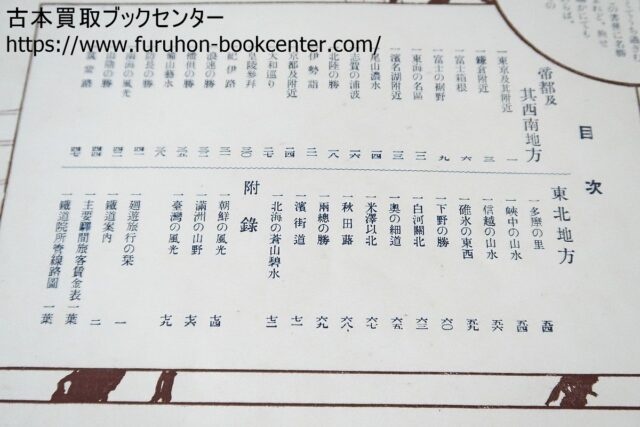 古本買取ブックセンター
https://www.furuhon-bookcenter.com/
目次
帝都及其西南地方
一東京及其附近 一
一鎌倉附近 三
一富士箱根 六
一富士の裾野 九
一東海の名區 一一
一濱名湖附近 一三
一尾山濃水 一四
一志賀の浦波 一六
一北陸の勝 一八
伊勢詣 二一
京都及附近 二四
大和巡り 二七
皇陵參拜 三〇
紀伊路 三一
浪速の勝 三二
東北地方
一多摩の里 五四
一峽中の山水 五四
一信越の山水 五六
一碓氷の東西 五九
一下野の勝 六〇
一白河關北 六三
一奥の細道 六五
一米澤以北 六七
一秋田蕗 六八
一兩總の勝 六九
一濱街道 七一
一北海の蒼山碧水 七二
附錄
一朝鮮の風光 七四
一滿洲の山野 七六
一臺灣の風光 七九
一廻遊旅行の栞
一鐵道案内 一
一主要驛間旅客賃金表 二
一鐵道院所管線路圖 一葉